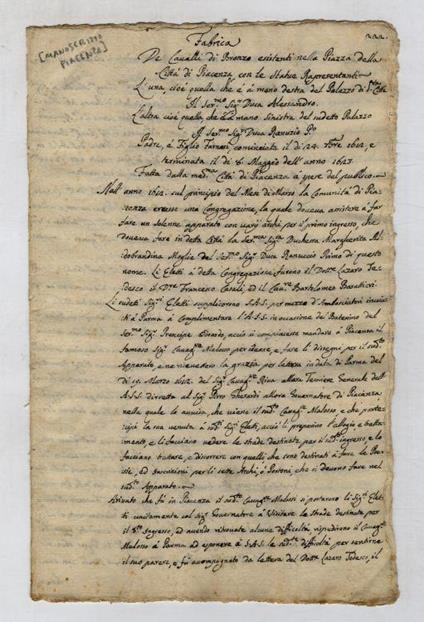 [MANOSCRITTO
PIACENZA]
222.
Fabrica
De Cavalli di Bronzo esistenti nella Piazza della
Città di Piacenza, con le Statue Rapresentanti
L'una, cioè quella che è à mano destra del Palazzo di
Il Ser.mo Sig.r Duca Alessandro.
L'altra cioè quella, che è à mano sinistra del sudetto Palazzo
Il Ser.mo Sig.r Duca Ranuzio P.o
Padre, e Figlio Farnesi, cominciata il dì 24. 9bre 1612, e
terminata il dì 6 Maggio dell'anno 1625.
Fatta dalla med.ma Città di Piacenza à spese del publico.
Nell'anno 1612. sul principio del Mese di Marzo la Comunità di Pia-
cenza eresse una Congregazione, la quale doveva assistere à far
fare un solenne apparato con varij archi per il primo ingresso, che
doveva fare in detta Città la Ser.ma Sig.ra Duchessa Margherita Al-
dobrandina Moglie del Ser.mo Sig.r Duca Ranuccio Primo di questo
nome. Li Eletti à detta Congregazione furono il Dott.r Lazaro Te-
desco il Dott.r Francesco Casali, ed il Cav.re Bartolomeo Barattieri
Li sudetti Sig.ri Eletti supplicorono S.A.S. per mezzo d'Ambasciatori inviati
à Parma à Complimentare l'A.S.S. in occasione del Batesimo del
Ser.mo Sig.r Prencipe acciò si compiacesse mandare à Piacenza il
famoso Sig.r Malosso per ideare, e fare li disegni per il sud.o
Apparato, e ne riceverono la grazia, per lettera in data di Parma del
dì 19. Marzo 1612. del Sig.r Riva Tesoriere Generale dell'
A.S.S. diretta al Sig.r Gherardi allora Governatore di Piacenza
nella quale lo avvisa, che viene il sud.o Malosso, e che parte-
cipi la sua venuta à sud.i Sig.ri Eletti, acciò li preparino l'alogio e tratta-
mento, e li facciano vedere le strade destinate per il sud.o ingresso, e lo
facciano trattare, e discorrere con quelli che sono destinati à fare le Poe-
sie, ed Inscrizioni per li sette Archi, ò Portoni, che si devono fare nel
sud.o Apparato.
Arivato che fù in Piacenza il sud.o Malosso si portorono li Sig.ri Elet-
ti unitamente col Sig.r Governatore à Visitare le strade destinate per
il Ingresso, ed avendo ritrovate alcune difficoltà, rispedirono il
Malosso à Parma ad esponere à S.A.S. le sud.e difficoltà per sentirne
il suo parere, e fù accompagnato da lettera del Dott.r Lazaro Tedesco, il